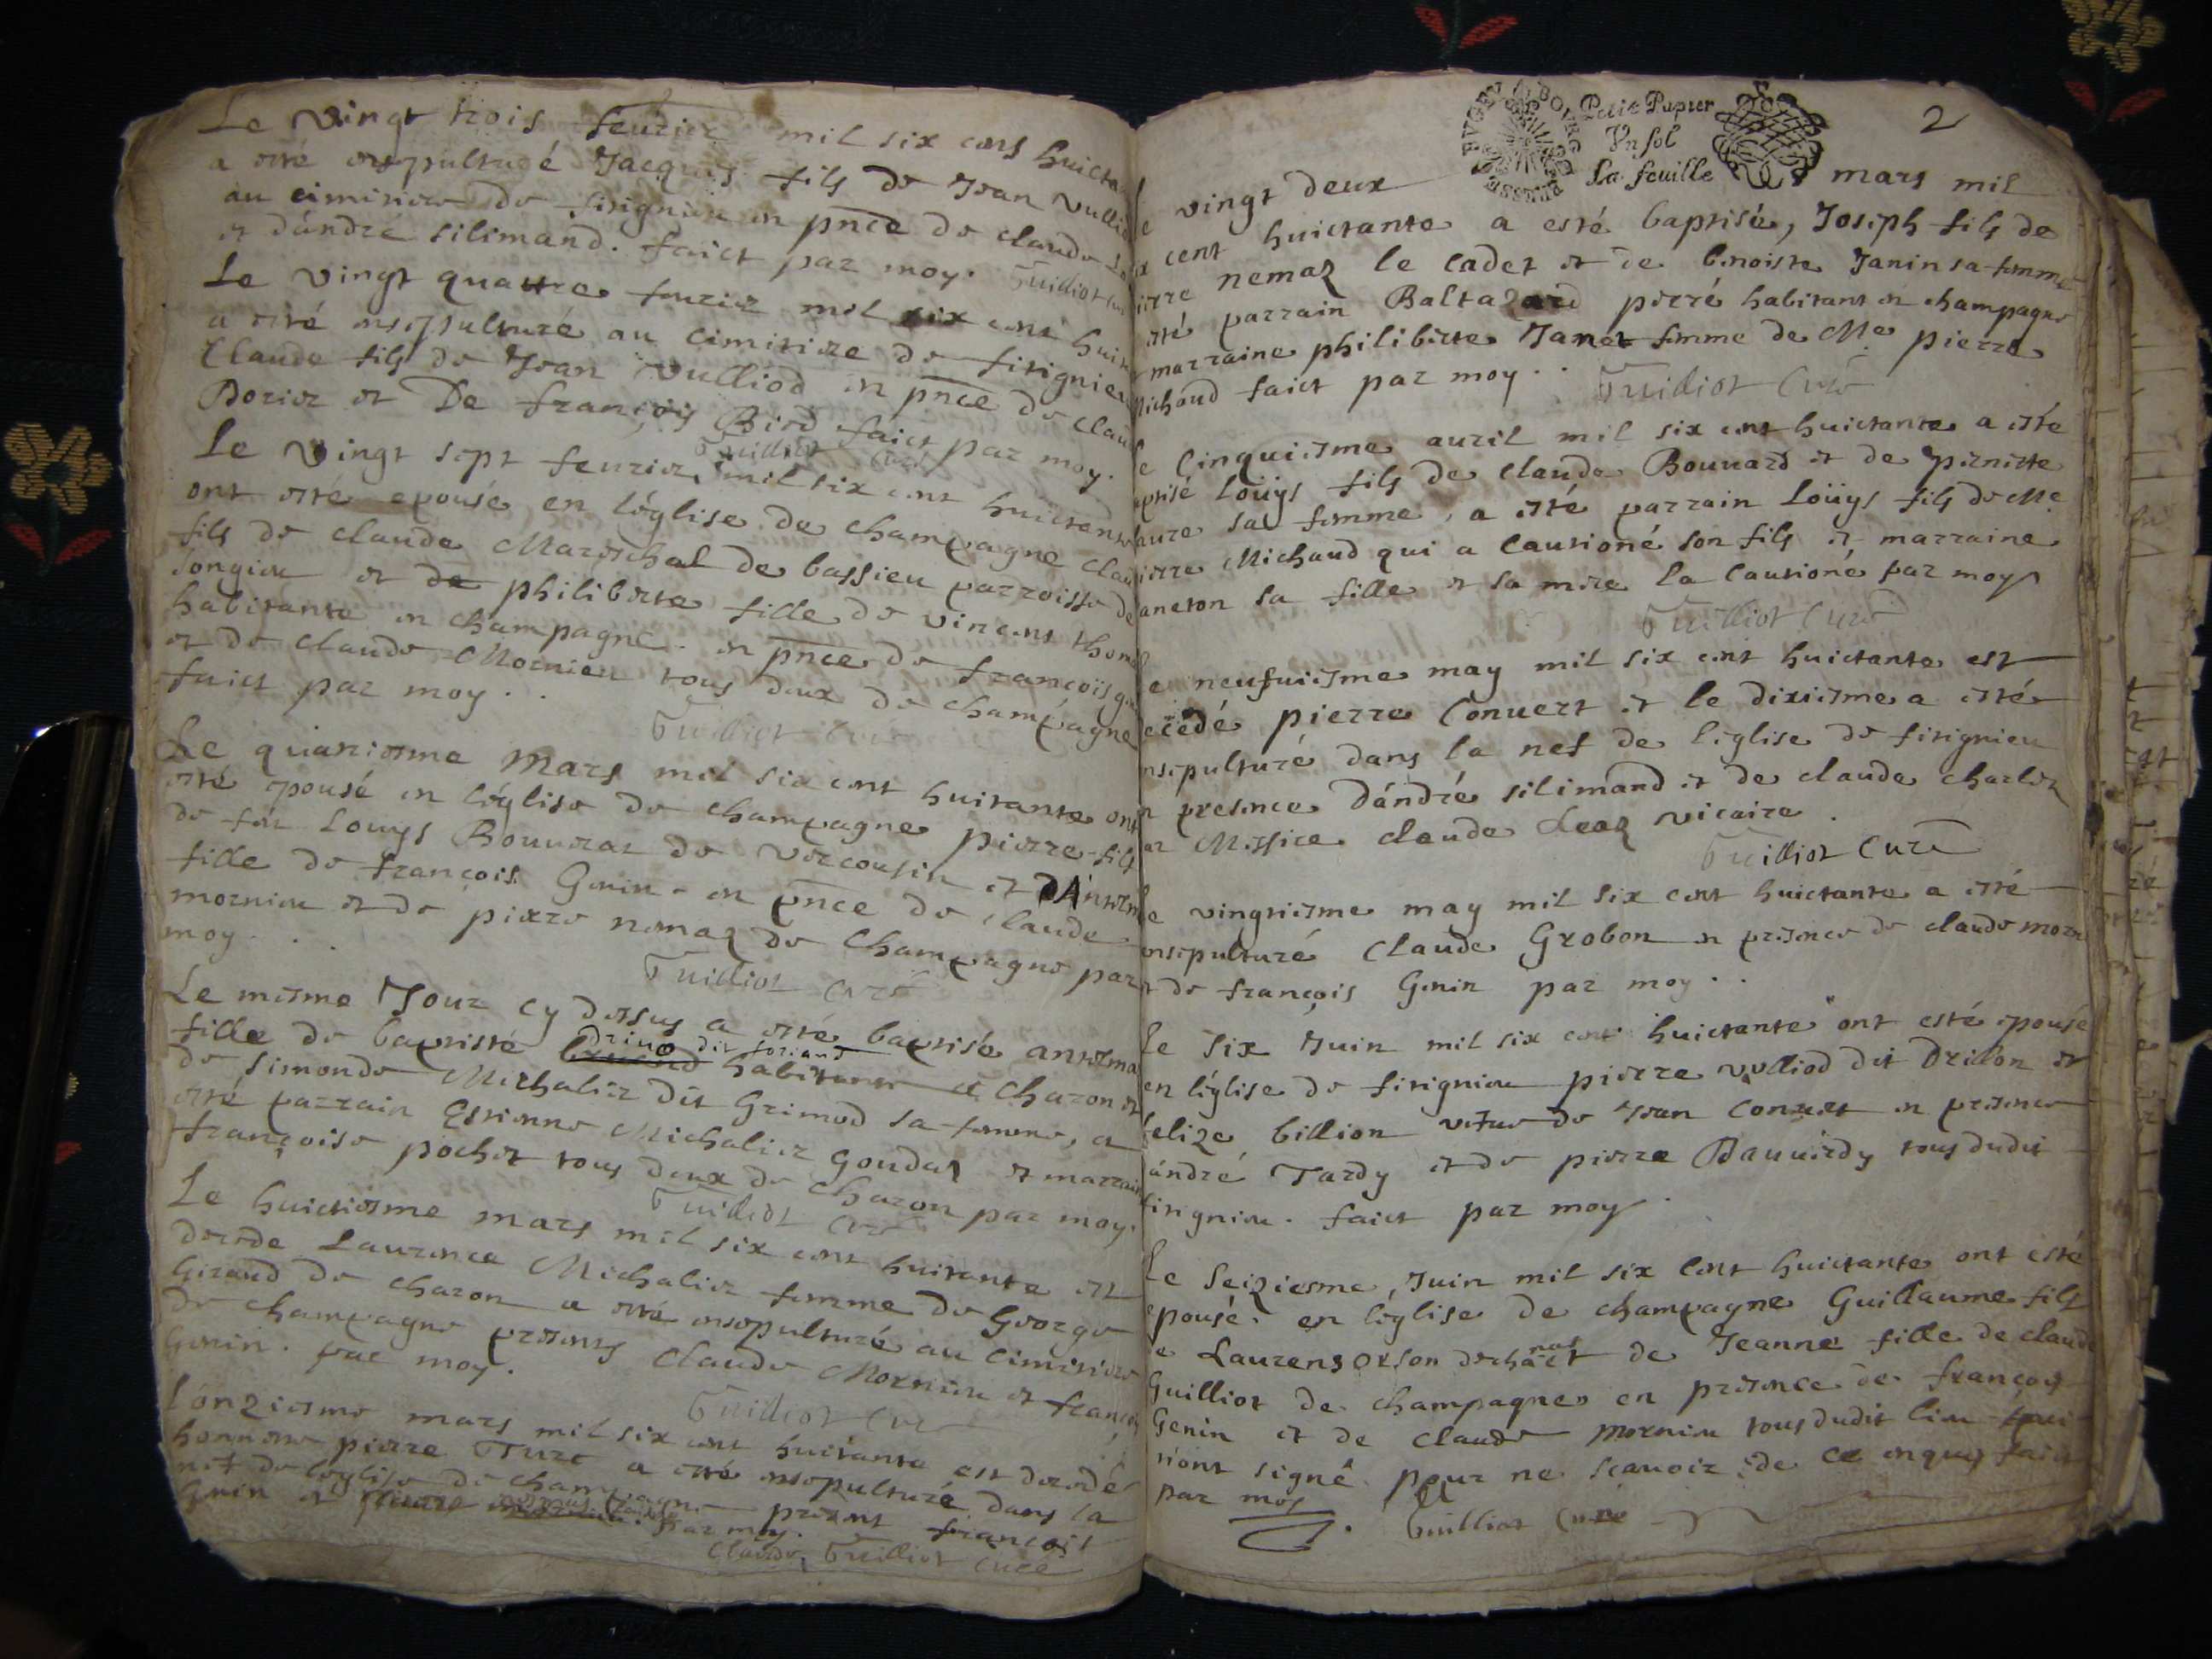 Le vingt trois feurier mil six cens huicta
a esté ensepulturé Jacques fils de Jean Vullio
au cimitiere de fitignieu en pnce de claude
et dándré silimand. faict par moy. Guilliot curé
Le vingt quattre feurier mil six cent huict
a esté ensepulturé au cimitiere de fitignieu
Claude fils de Jean vulliod en pnce de clau
Borier et De françois Biod faict par moy.
Guilliot Curé
Le vingt sept feurier mil six cent huictante
ont esté epousé en léglise de champagne clau
fils de claude Mareschal de bassieu parroisse de
songieu et de philiberte fille de vincent thom
habitante en champagne. en pnce de françois g
et de claude Mornieu tous deux de champagne
faict par moy..
Guilliot Curé
Le quatriesme Mars mil six cent huitante ont
esté epousé en léglise de champagne pierre fils
de feu Louys Bouurat de vercousin et dAntelm
fille de françois Genin. en pnce de claude
mornieu et de pierre nemaz de Champagne par
moy...
Guilliot Curé
Le mesme Jour cy dessus a esté baptisée antelma
fille de baptiste habitant a Charon et
de simonde Michalier dit Grimod sa femme, a
esté parrain Estienne Michalier goudar et marrain
françoise pochet tous deux de Charon par moy.
Guilliot Curé
Le huictiesme mars mil six cent huitante est
decede Laurence Michalier femme de George
Giraud de charon a esté ensepulturé au cimitiere
de champagne presents Claude Mornieu et françois
Genin. par moy.
Guilliot Curé
Lónziesme mars mil six cent huitante est decedé
honneste pierre Turc a esté ensepulturé dans la
nef de léglise de champagne present françois
Genin et par moy.
Claude Guilliot curé
BVGEY
Petit Papier
Vn sol
La feuille
2
vingt deux mars mil
cent huictante a esté baptisée, Joseph fils de
ierre nemaz le cadet et de benoiste Janin sa femme
esté parrain Baltazard pierré habitant en champagne
marraine philiberte Janet femme de Me. pierre
Michaud faict par moy..
Guilliot Curé
le Cinquiesme auril mil six cent huictante a esté
aptisé Loüys fils de claude Bouuard et de pernette
faure sa femme, a esté parrain Loüys fils de Me.
ierre Michaud qui a cautioné son fils et marraine
aneton sa fille et sa mere la cautioné par moy
Guilliot Curé
le neufuiesme may mil six cent huictante est
ecédé pierre Conuert et le dixiesme a esté
nsepulturé dans la nef de léglise de fitignieu
n presence dándré silimand et de claude charlet
ar Messire claude Leaz vicaire.
Guilliot Curé
le vingtiesme may mil six cent huictante a esté
ensepulturé Claude Grobon en presence de claude morn
et de françois Genin par moy..
Le Six Juin mil six cent huictante ont esté epousé
en léglise de fitignieu pierre vulliod dit Drillon et
felize billion vefue de Jean Conuert en presence
ándré Tardy et de pierre Bauuerdy tous dudit
fitignieu. faict par moy.
Le Seiziesme, Juin mil six Cent huictante ont esté
epousé. en léglise de champagne Guillaume fils
e Laurens orson et de Jeanne fille de claude
Guilliot de champagne en presence de françois
Genin et de claude mornieu tous dudit lieu qui
n'ont signé. pour ne scauoir de ce enquis faict
par moy
Guilliot Curé